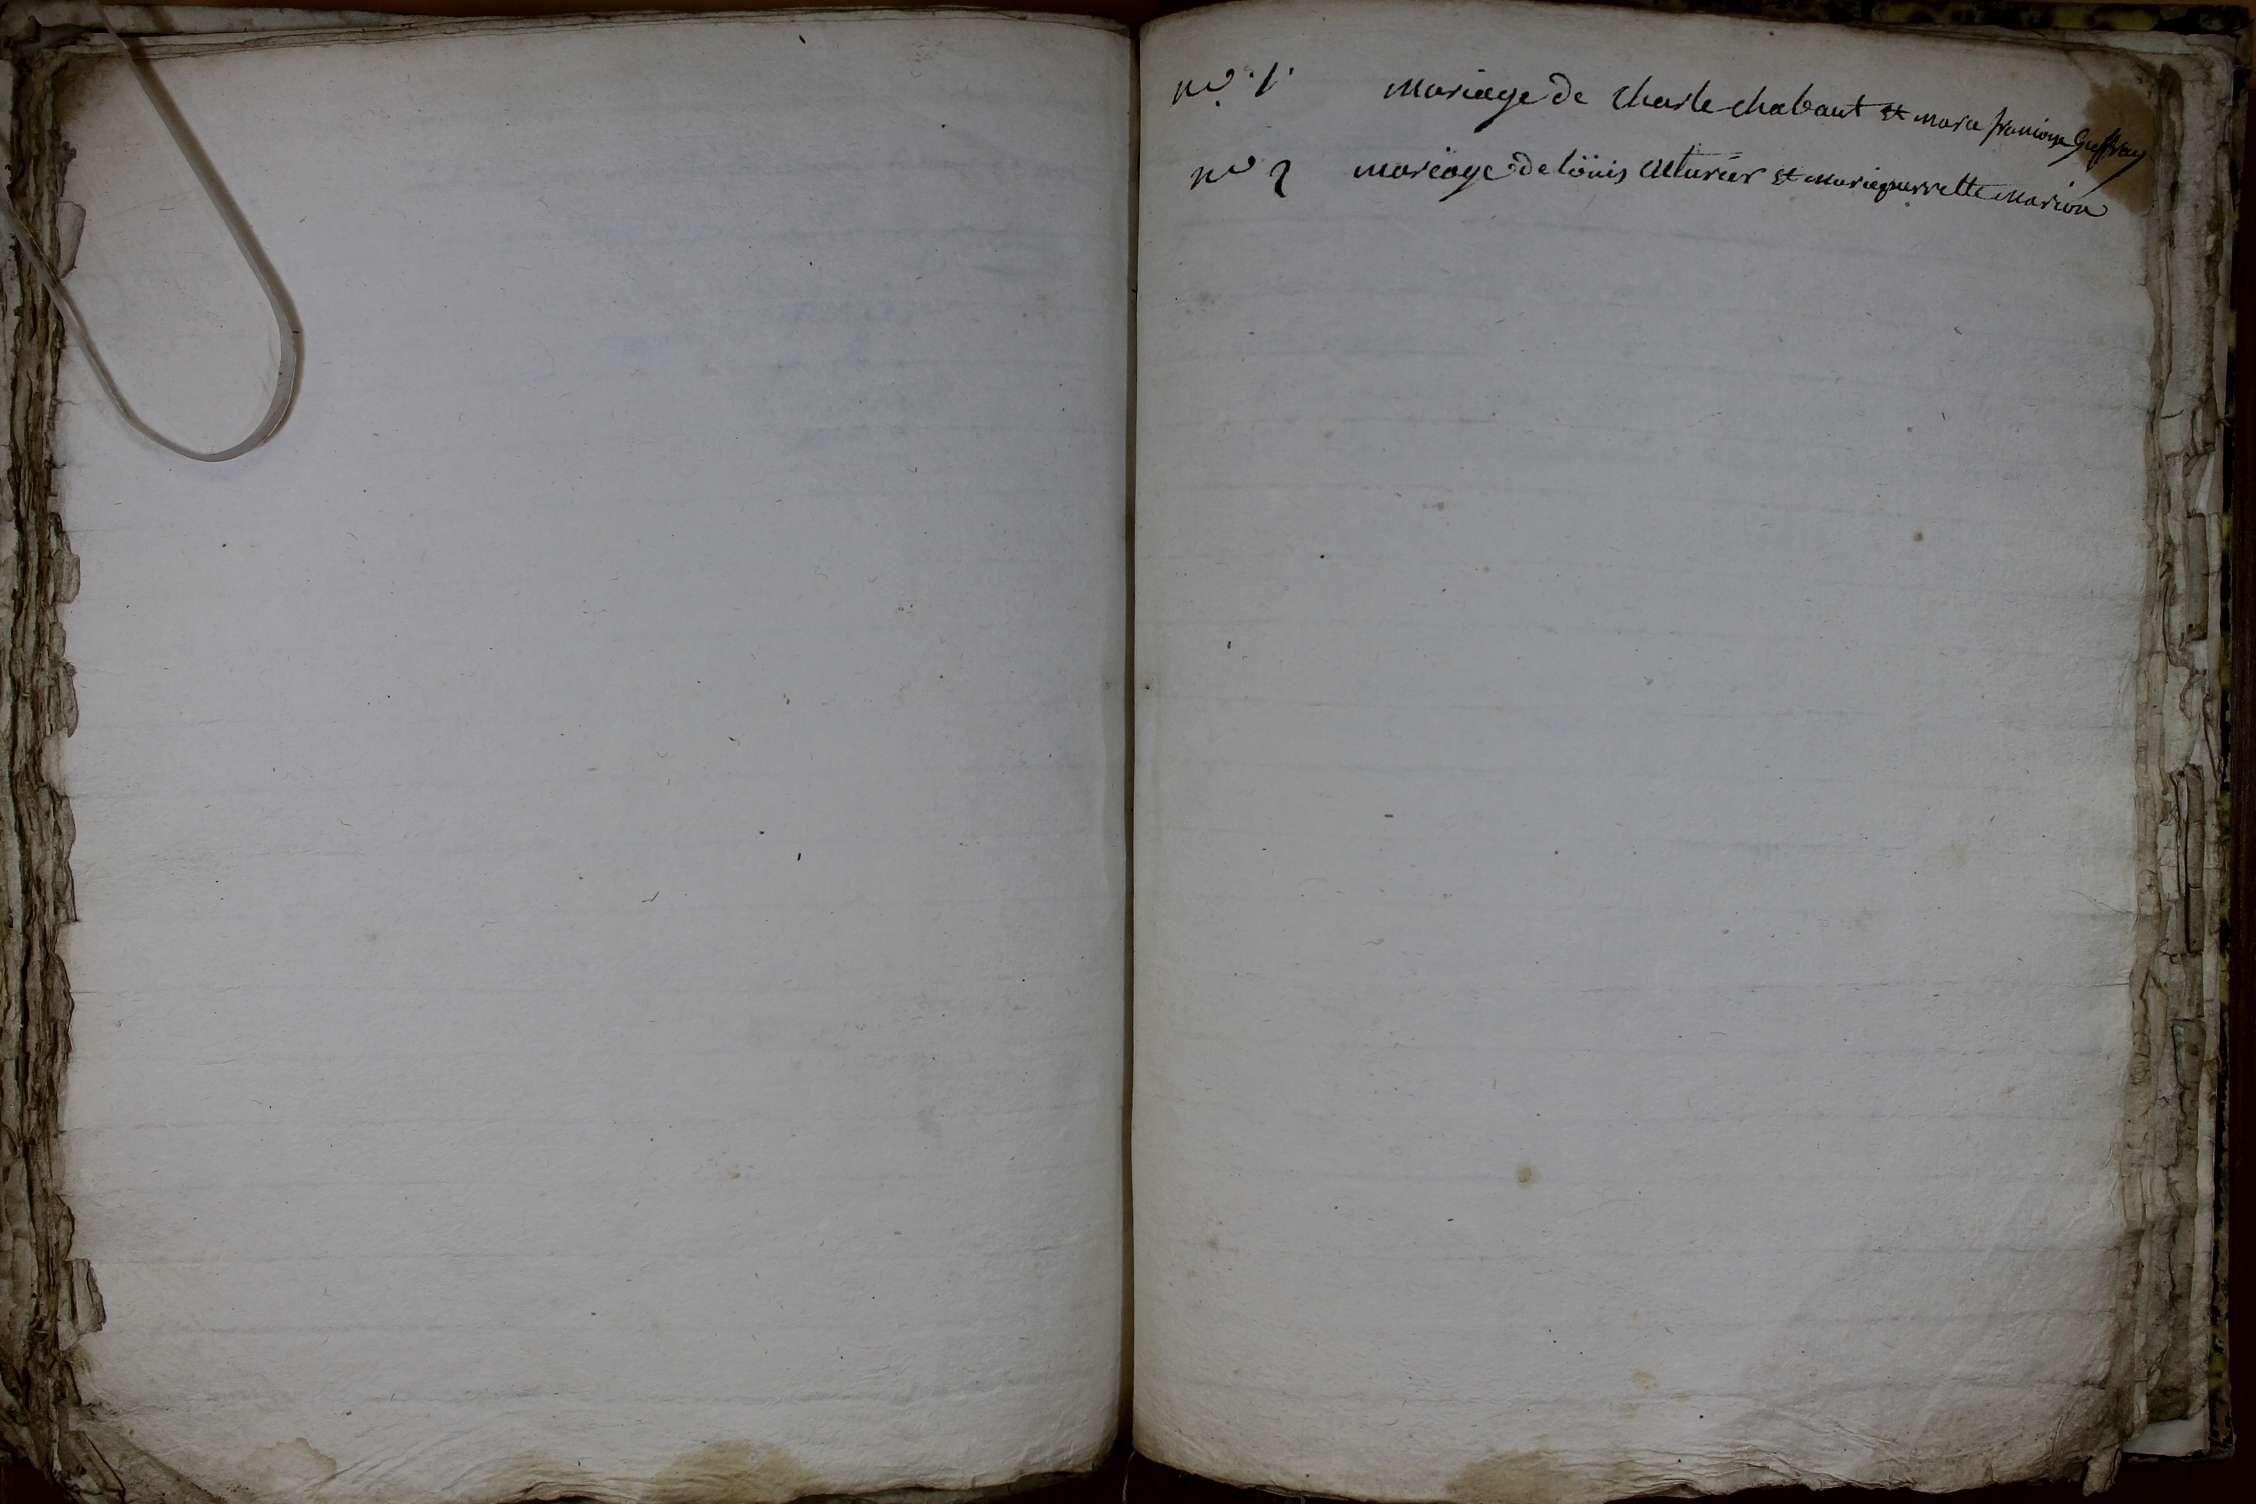 no. 1. Mariage de Charle Chabaut et marie francoise Geffray
no 2 mariage de loüis Couturier et Marie pierrette Marion